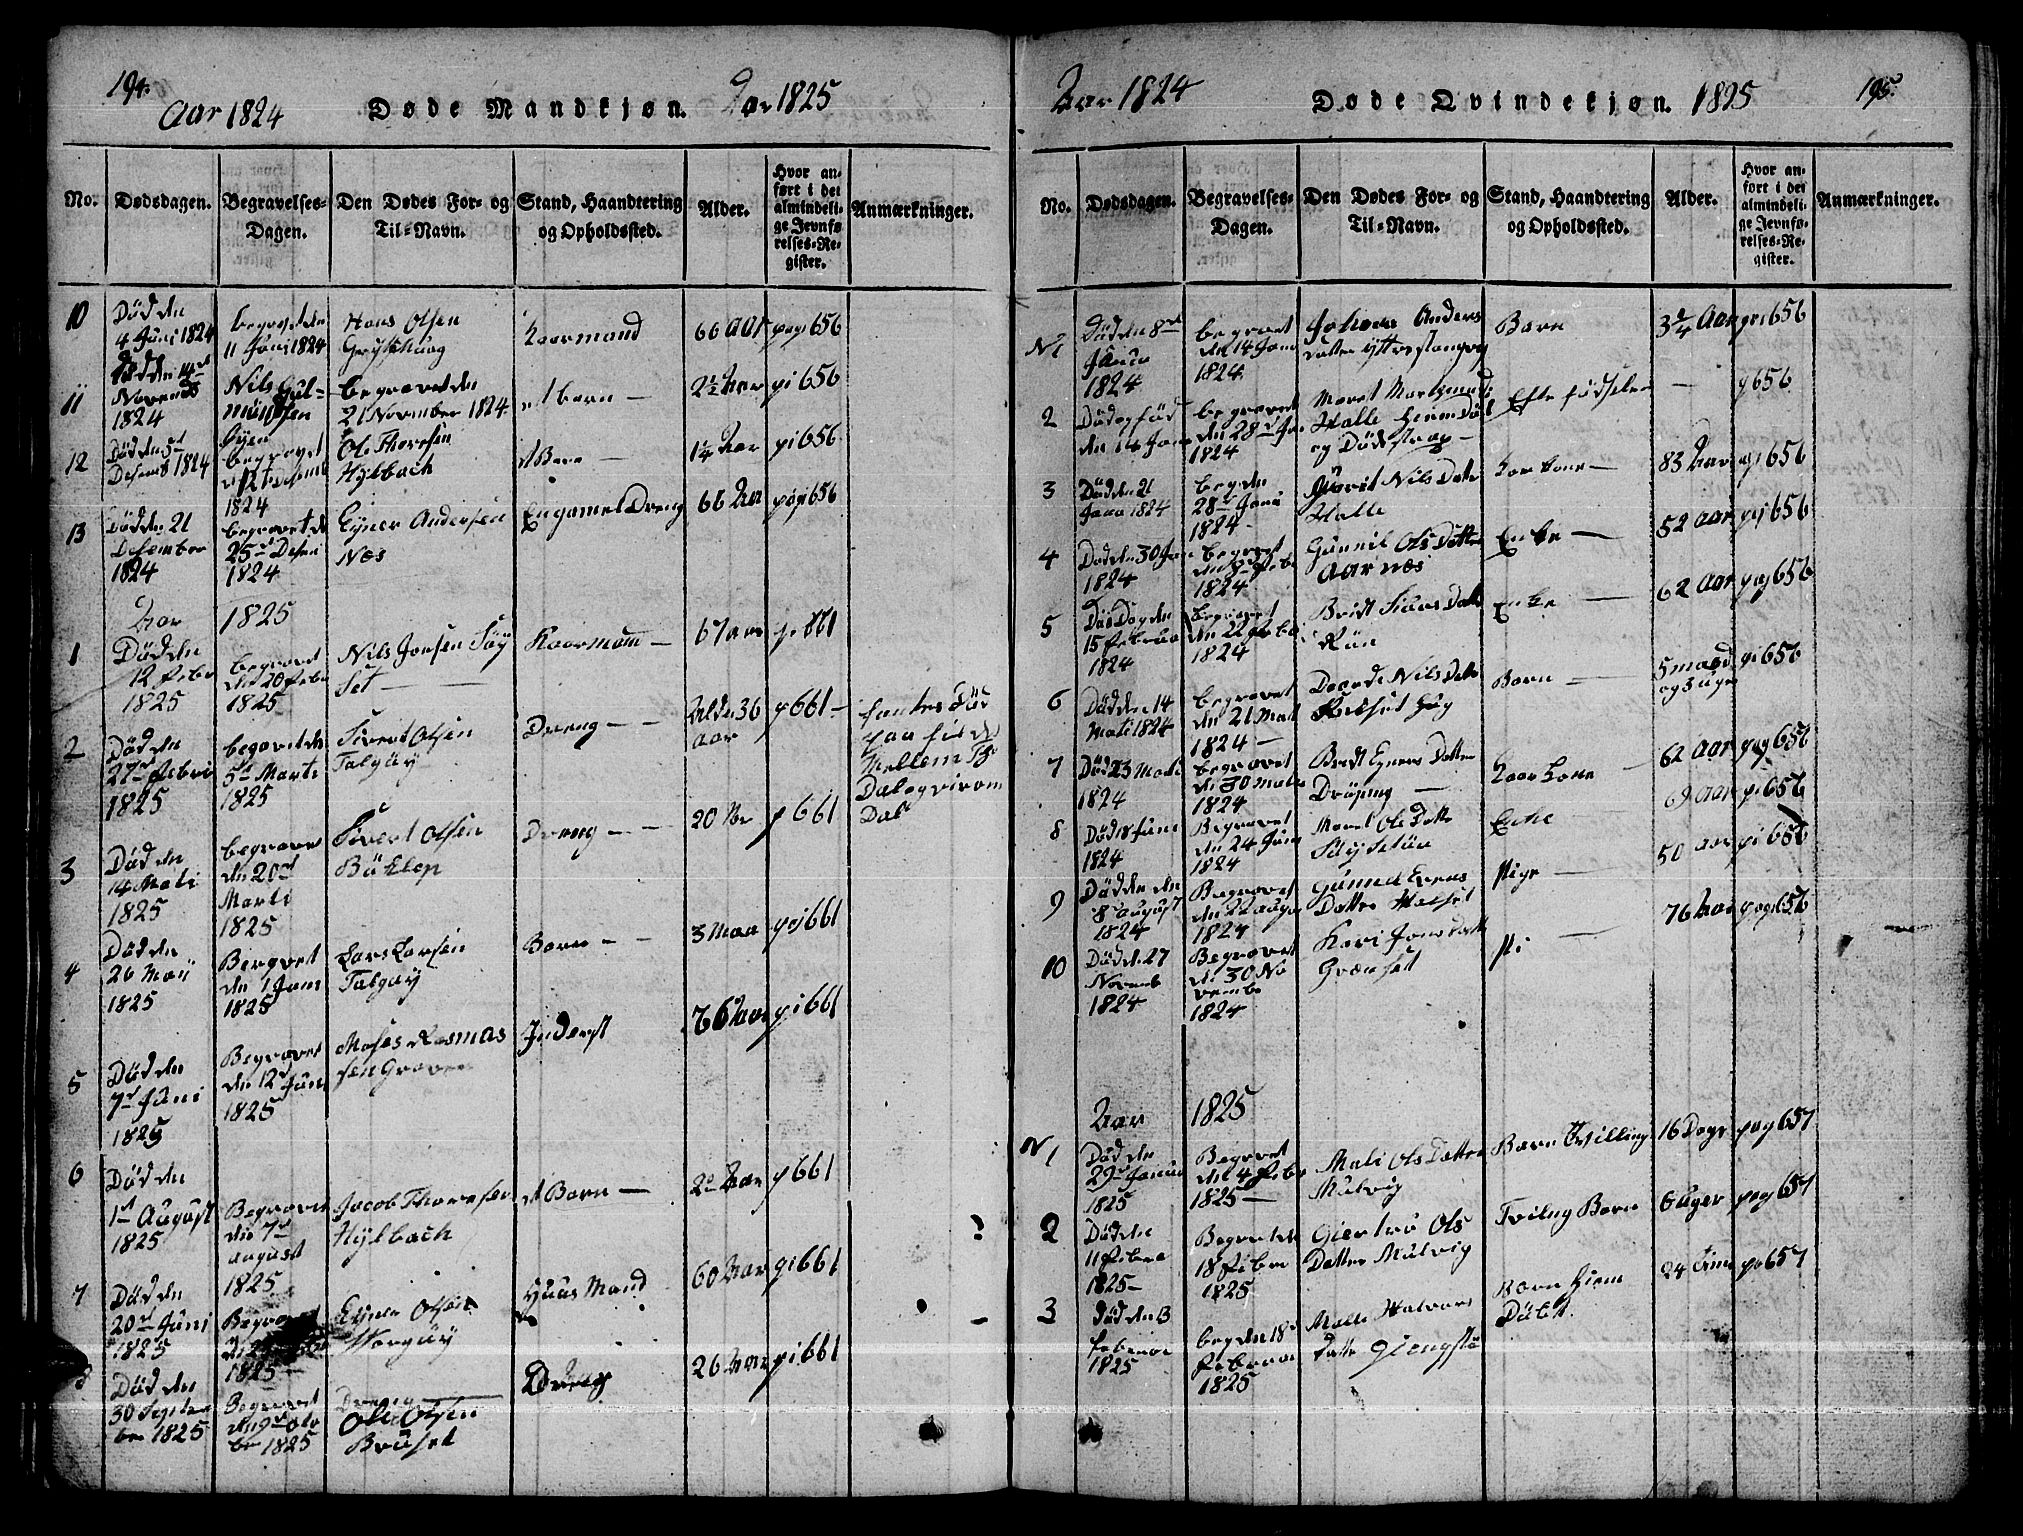 194.
Aar 1824
Døde Mandkjøn.
Aar 1825
No.
Dødsdagen.
Begravelses-
Dagen.
Den Dødes For- og
Til-Navn.
Stand, Haandtering
og Opholdssted.
Alder.
Hvor an-
ført i det
almindeli-
ge Jevnfø-
relses-Re-
gister.
Anmærkninger.
10
Död den
4 Juni 1824
begravet den
11 Juni 1824
Hans Olsen
Kaarmand
66 aar
pag 656
11
Död den 14de
Novemb
1824
Nils Gul-
Øyen
begravet den
21 November 1824
et barn —
2½ aar
pi 656
12
Död den
Desemb 1824
begravet
d 12te Desemb
1824
Ole Thoresen
Hylbach
et Barn —
1¼ aar
pi 656
13
Död den 21
Desember
1824
begravet d
25de Desem
1824
Eyner Andersen
Næs
En gamel Dreng
66 aar
pagi 656
Aar 1825
1
Död den
12 Febr
1825
begravet
den 20 Febr
1825
Nils Jonsen Söy
Set —
Kaarmam —
67 aar
pi 661
2
Död den
27de Febri
1825
begavet den
5te Marti
1825
Sivert Olsen
Talgøy
Dreng — —
alder 36
aar
p 661 —
fantes Död
paa fieldet
Mellem
Dal og virom
Dal
3
Död den
14 Marti
1825
begravet
den 20de
Marti
1825
Sivert Olsen
Dreng — —
20 Ar
p 661
4
Död den
26 Maii
1825
Begravet
den 1 Juni
1825
Lars Larsen
Talgøy
Barn — —
3 Maa
pag 661
5
Död den
7de Juni
1825
Begravet
den 12te Juni
1825
Moses Rasmus
sen Graven
Inderst
76 aar
pi 661
6
Död den
1ste August
1825
Begravet
den 7de
august
1825
Jacob Thoresen
Hylbach
et Barn —
2 aar
p 661
7
Död den
20de Juni
1825
Begravet
1825
Eyner Olsen
Huus Mand
60 aar
pi 661
8
Död den
30 Septem
ber 1825
Begravet
den 9de Octo
ber 1825
Dreng
Ole Olsen
Brüset
Dreng
26 aar
pi 661
Aar 1824
Døde Qvindekjøn.
1825
195.
No.
Dødsdagen.
Begravelses-
Dagen.
Den Dødes For- og
Til-Navn.
Stand, Haandtering
og Opholdssted.
Alder.
Hvor an-
ført i det
almindeli-
ge Jevnfø-
relses-Re-
gister.
Anmærkninger.
N 1
Död den 8de
Janua
1824
begravet
den 14 Janu
1824
Johana Anders
Datter Yttrestangvig
Barn
3¾ Aar
pi 656
2
Död og föd
den 14 Janu
begravet
den 28de Jan
1824
Maret
Halle hiem Döbt
og Död strap —
Efte födselen
—
p 656
3
Död den 21
Janu 1824
beg den
28de Janu
1824
Marit Nils Dater
Halle
Kaar kone —
83 Aar
pagi 656
4
Död den 30 Jan
1824
begravet
den 8de Febr
1824
Gunnil Ols Datter
Aarnæs
Enke —
52 aar
pagi 656
5
Död den
15 Februa
1824
begravet
den 22 Febr
1824
Brit Siurs Datt
Röen
Enke —
62 aar
pag 656
6
Död den 14
Marti 1824
begravet
den 21 Mart
1824 —
Dorde Nils Date
Barn —
5 maad
og 3 uger
pi 656
7
Död 23 Marti
1824
begravet
den 30 Marti
1824
Brit Eyners Datter
Dröping —
Kaar kone —
62 Aar
pag 656
8
Död 18 Juni
1824
Begravet
den 24 Juni
1824
Maret Ole Datte
Enke —
69 aar
pi 656
9
Död den
8de august
1824
Begravet
den 22 augu
1824
Gunnild Evens
Datter Halset
Pige —
50 aar
pi 656
10
Död d. 27
Novemb
1824
Begravet
den 30 No
vember
1824
Kari Jons Datt
Grönset
Pi —
76 Aar
pagi 656
Aar 1825
N 1
Död den
29de Janua
1825
Begravet
den 4 Febr
1825 —
Mali Ols Datter
Mulvig
Barn Tvilling
16 Dage
pag 657
2
Död den
11 Febru
1825 —
Begravet den
18 Febru
1825
Giertru Ols
Datter Mulvig
Tviling Barn
6 uger
pag 657
3
Död den 13
Februar
1825
beg den 18de
Februar
1825
Mali Halvors
Datte Giengstö
Barn hiem
Döbt.
24 Timer
pa 657